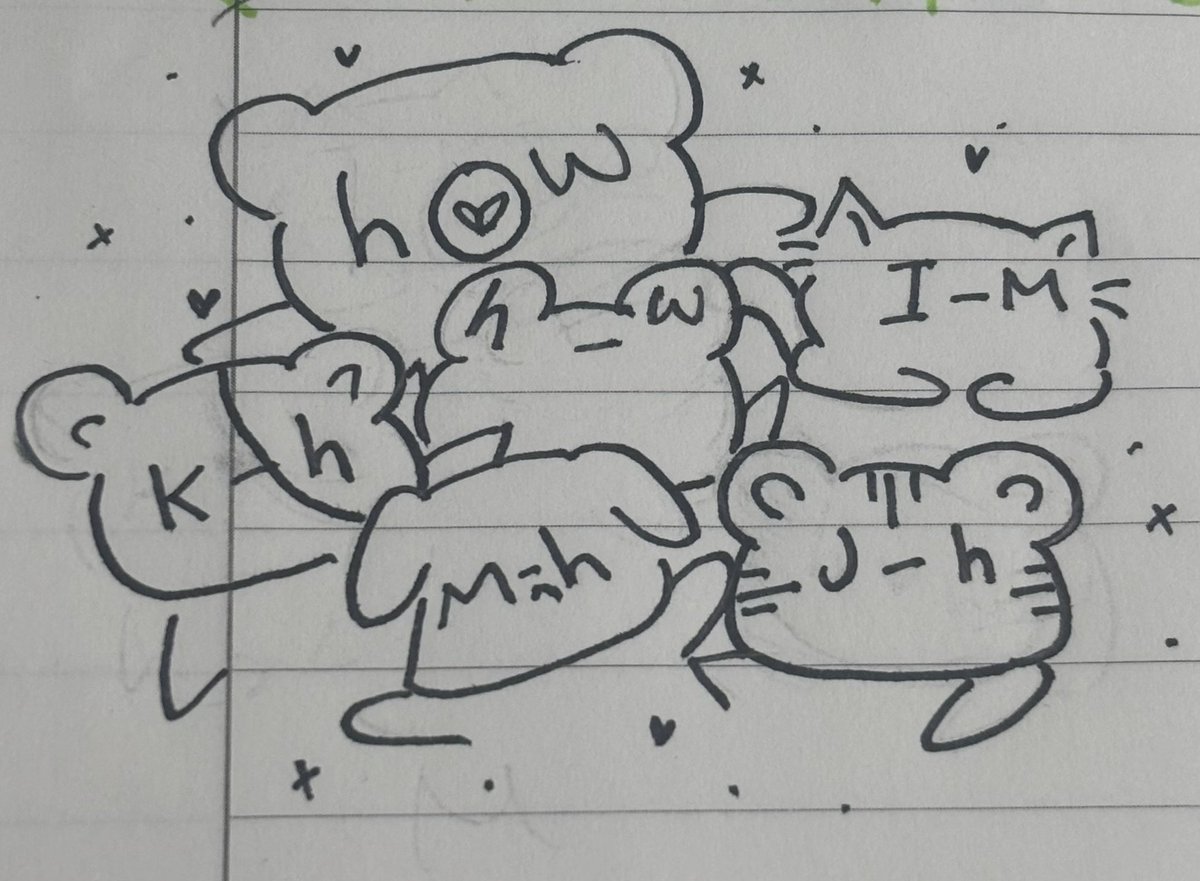 how
I-M
h-w
K-h
M-h
J-h